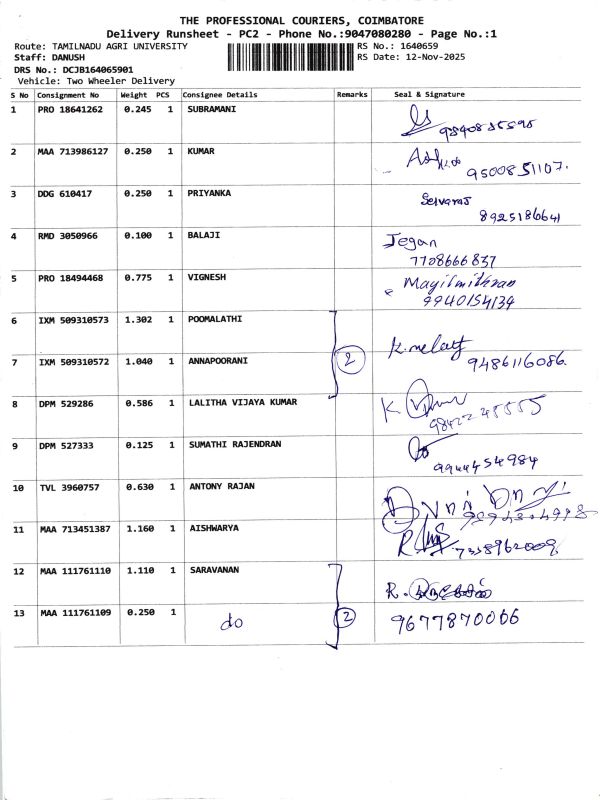 THE PROFESSIONAL COURIERS, COIMBATORE
Delivery Runsheet - PC2 - Phone No.:9047080280 - Page No.:1
Route: TAMILNADU AGRI UNIVERSITY RS No.: 1640659
Staff: DANUSH RS Date: 12-Nov-2025
DRS No.: DCJB164065901
Vehicle: Two Wheeler Delivery
S No Consignment No Weight PCS Consignee Details Remarks Seal & Signature
1 PRO 18641262 0.245 1 SUBRAMANI
2 MAA 713986127 0.250 1 KUMAR
9500851107.
3 DDG 610417 0.250 1 PRIYANKA Selvaraj
8925186641
4 RMD 3050966 0.100 1 BALAJI Jegan
7708666837
5 PRO 18494468 0.775 1 VIGNESH Mayilmithran
9940154139
6 IXM 509310573 1.302 1 POOMALATHI
2
7 IXM 509310572 1.040 1 ANNAPOORANI 9486116086.
8 DPM 529286 0.586 1 LALITHA VIJAYA KUMAR K
9 DPM 527333 0.125 1 SUMATHI RAJENDRAN
9944454984
10 TVL 3960757 0.630 1 ANTONY RAJAN
11 MAA 713451387 1.160 1 AISHWARYA
7358962009
12 MAA 111761110 1.110 1 SARAVANAN R.
13 MAA 111761109 0.250 1 do 2 9677870066